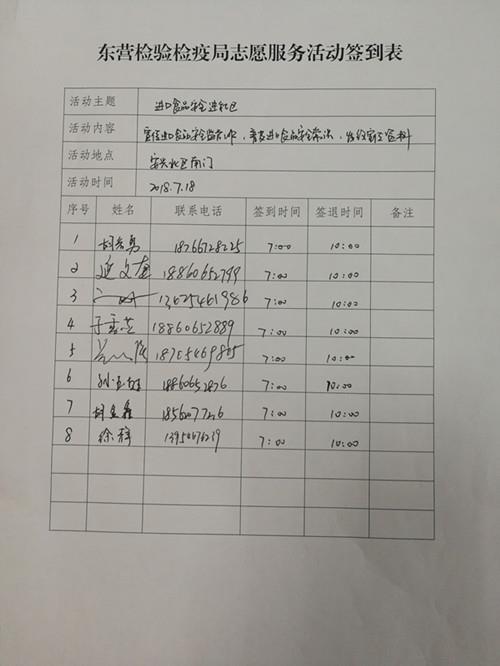 东营检验检疫局志愿服务活动签到表
活动主题 进口食品安全进社区
活动内容 宣传进口食品安全监管工作，普及进口食品安全常识，发放宣传资料
活动地点 安兴北区南门
活动时间 2018.7.18
序号 姓名 联系电话 签到时间 签退时间 备注
1 18766728225 7:00 10:00
2 18860652799 7:00 10:00
3 13625461986 7:00 10:00
4 于雪芝 18860652889 7:00 10:00
5 7:00 10:00
6 18860652876 7:00 10:00
7 7:00 10:00
8 徐梅 7:00 10:00